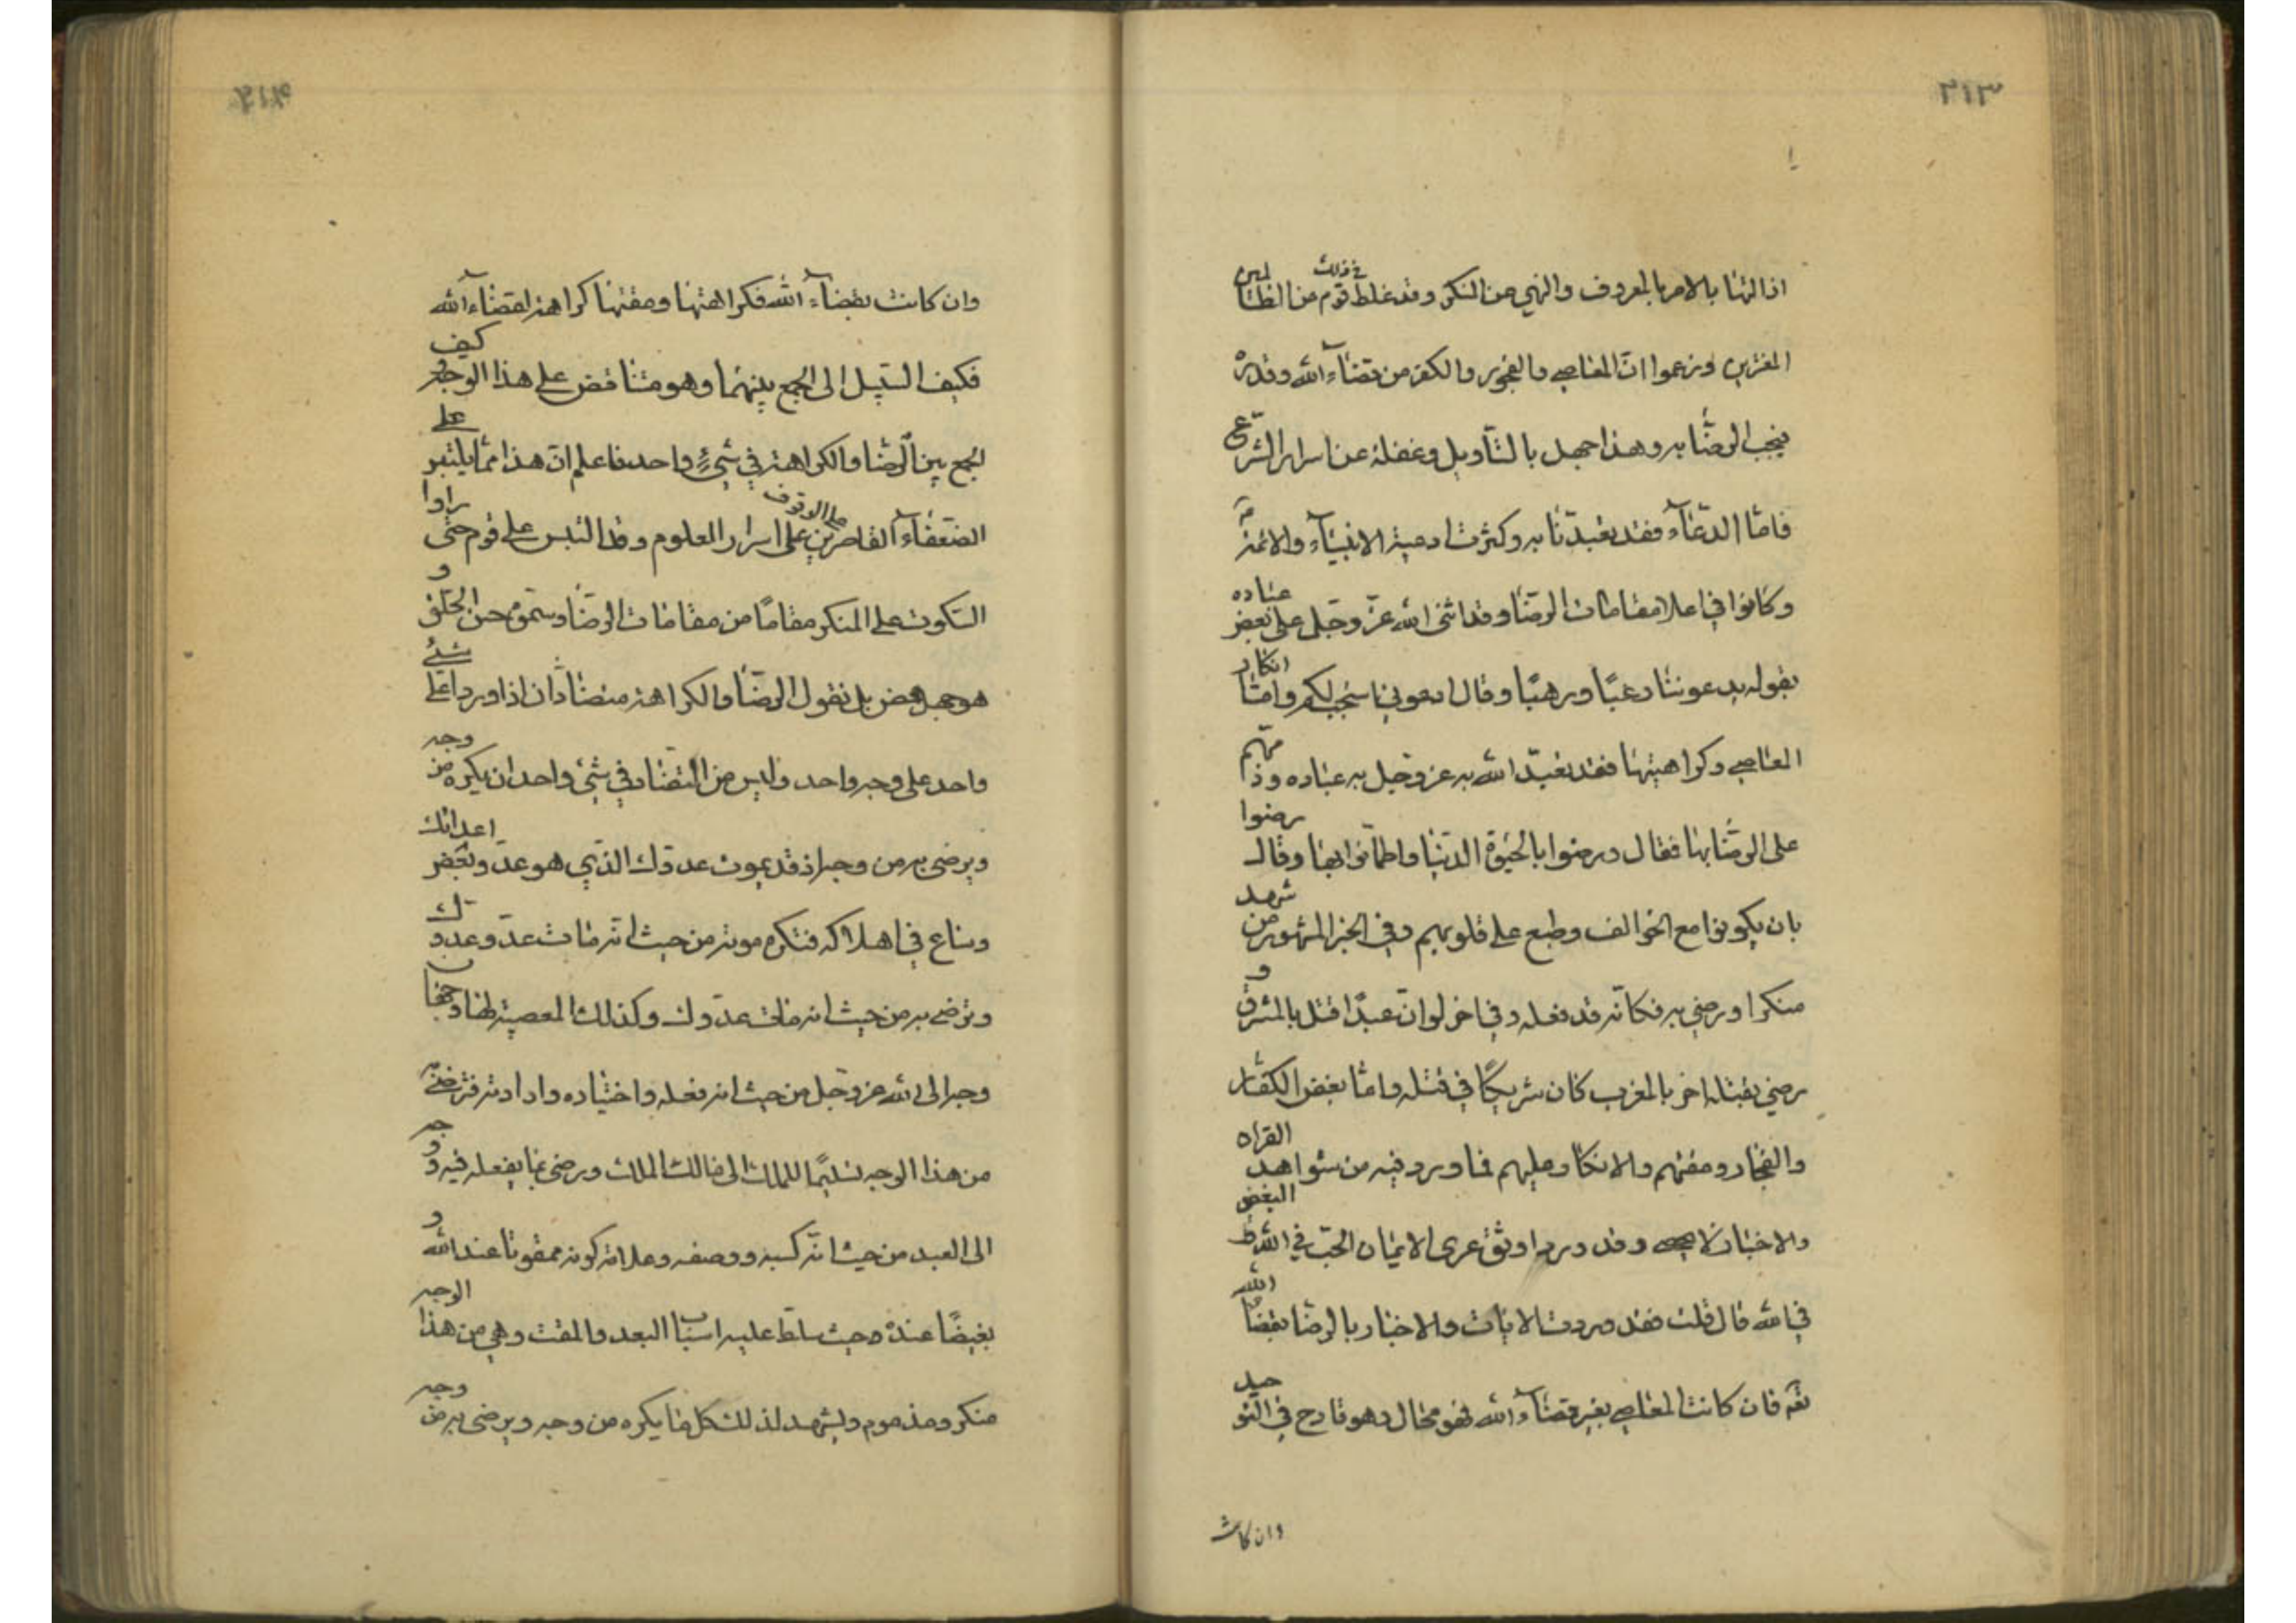 ٣١٣
ازالتها بالامر بالمعروف والنهي عن المنكر وقد غلط في ذلك قوم من البطالين
المغترين وزعموا ان المعاصي والفجور والكفر من قضاء الله وقدره
فيجب الرضا به وهذا جهل بالتأويل وغفلة عن اسرار الشرع
فامّا الدعاء فقد تعبدنا به وكثرت ادعية الانبياء والائمة
وكانوا في اعلا مقامات الرضا وقد اثنى الله عزّ وجلّ على بعض عباده
بقوله يدعوننا رغبًا ورهبًا وقال ادعوني استجب لكم وامّا انكار
المعاصي وكراهيتها فقد تعبّد الله به عز وجل به عباده وذمّهم
على الرضا بها فقال ورضوا بالحيوة الدنيا واطمأنوا بها وقال رضوا
بان يكونوا مع الخوالف وطبع على قلوبهم وفي الخبر المشهور من شهد
منكرا ورضي به فكانّه قد فعله وفي اخر لو انّ عبدًا قتل بالمشرق و
رضي بقتله اخر بالمغرب كان شريكًا في قتله وامّا بغض الكفّار
والفجّار ومقتهم والانكار عليهم فما ورد فيه من شواهد القران
والاخبار لا يحصى وقد ورد اوثق عرى الايمان الحبّ في الله و البغض
في الله فان قلت فقد وردت الايات والاخبار بالرضا بقضاء الله
تع فان كانت المعاصي بغير قضاء الله فهو محال وهو قادح في التوحيد
وان كانت
٣١٤
وان كانت بقضاء الله فكراهتها ومقتها كراهة لقضاء الله
فكيف السبيل الى الجمع بينهما وهو متناقض على هذا الوجه وكيف
الجمع بين الرضا والكراهة في شيءٍ واحد فاعلم انّ هذا ممّا يلتبس على
الضعفاء القاصرين عن الوقوف على اسرار العلوم وقد التبس على قوم حتى راوا
السكوت على المنكر مقامًا من مقامات الرضا وسمّوه حسن الخلق و
هو جهل محض بل نقول الرضا والكراهة متضادّان اذا وردا على شئ
واحد على وجه واحد وليس من التضاد في شئ واحد ان يكره من وجه
ويرضى به من وجه اذ قد يموت عدوّك الذي هو عدوّ بعض اعدائك
وساع في اهلاكه فتكره موته من حيث انّه مات عدوّ عدوّك
وترضى به من حيث انه مات عدوّك وكذلك المعصية لها وجهان
وجه الى الله عز وجل من حيث انه فعله واختياره وارادته فترضى به
من هذا الوجه تسليمًا للملك الى مالك الملك ورضى بما يفعله فيه ووجه
الى العبد من حيث انّه كسبه ووصفه وعلامة كونه ممقوتا عند الله و
بغيضًا عنده حيث سلّط عليه اسباب البعد والمقت وهي من هذا الوجه
منكر ومذموم وليشهد لذلك كل ما يكره من وجه ويرضى به من وجه